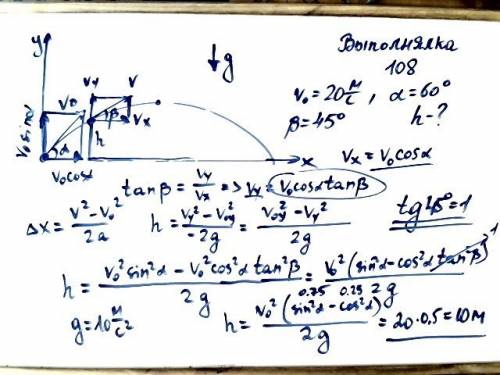 Выполнялка
108
y
↓g
v₀ = 20 м/с, α = 60°
β = 45° h - ?
v₀ sinα
v₀
vy
v
β
vx
α
h
v₀cosα
x
vx = v₀cosα
tanβ = vy/vx => vy = v₀cosα tanβ
tg45° = 1
Δx = (v² - v₀²)/2a h = (vy² - v₀y²)/-2g = (v₀y² - vy²)/2g
h = (v₀² sin²α - v₀² cos²α tan²β)/2g = v₀² (sin²α - cos²α tan²β)/2g
1
0.75 0.25
g = 10 м/с² h = v₀² (sin²α - cos²α)/2g = 20·0.5 = 10м